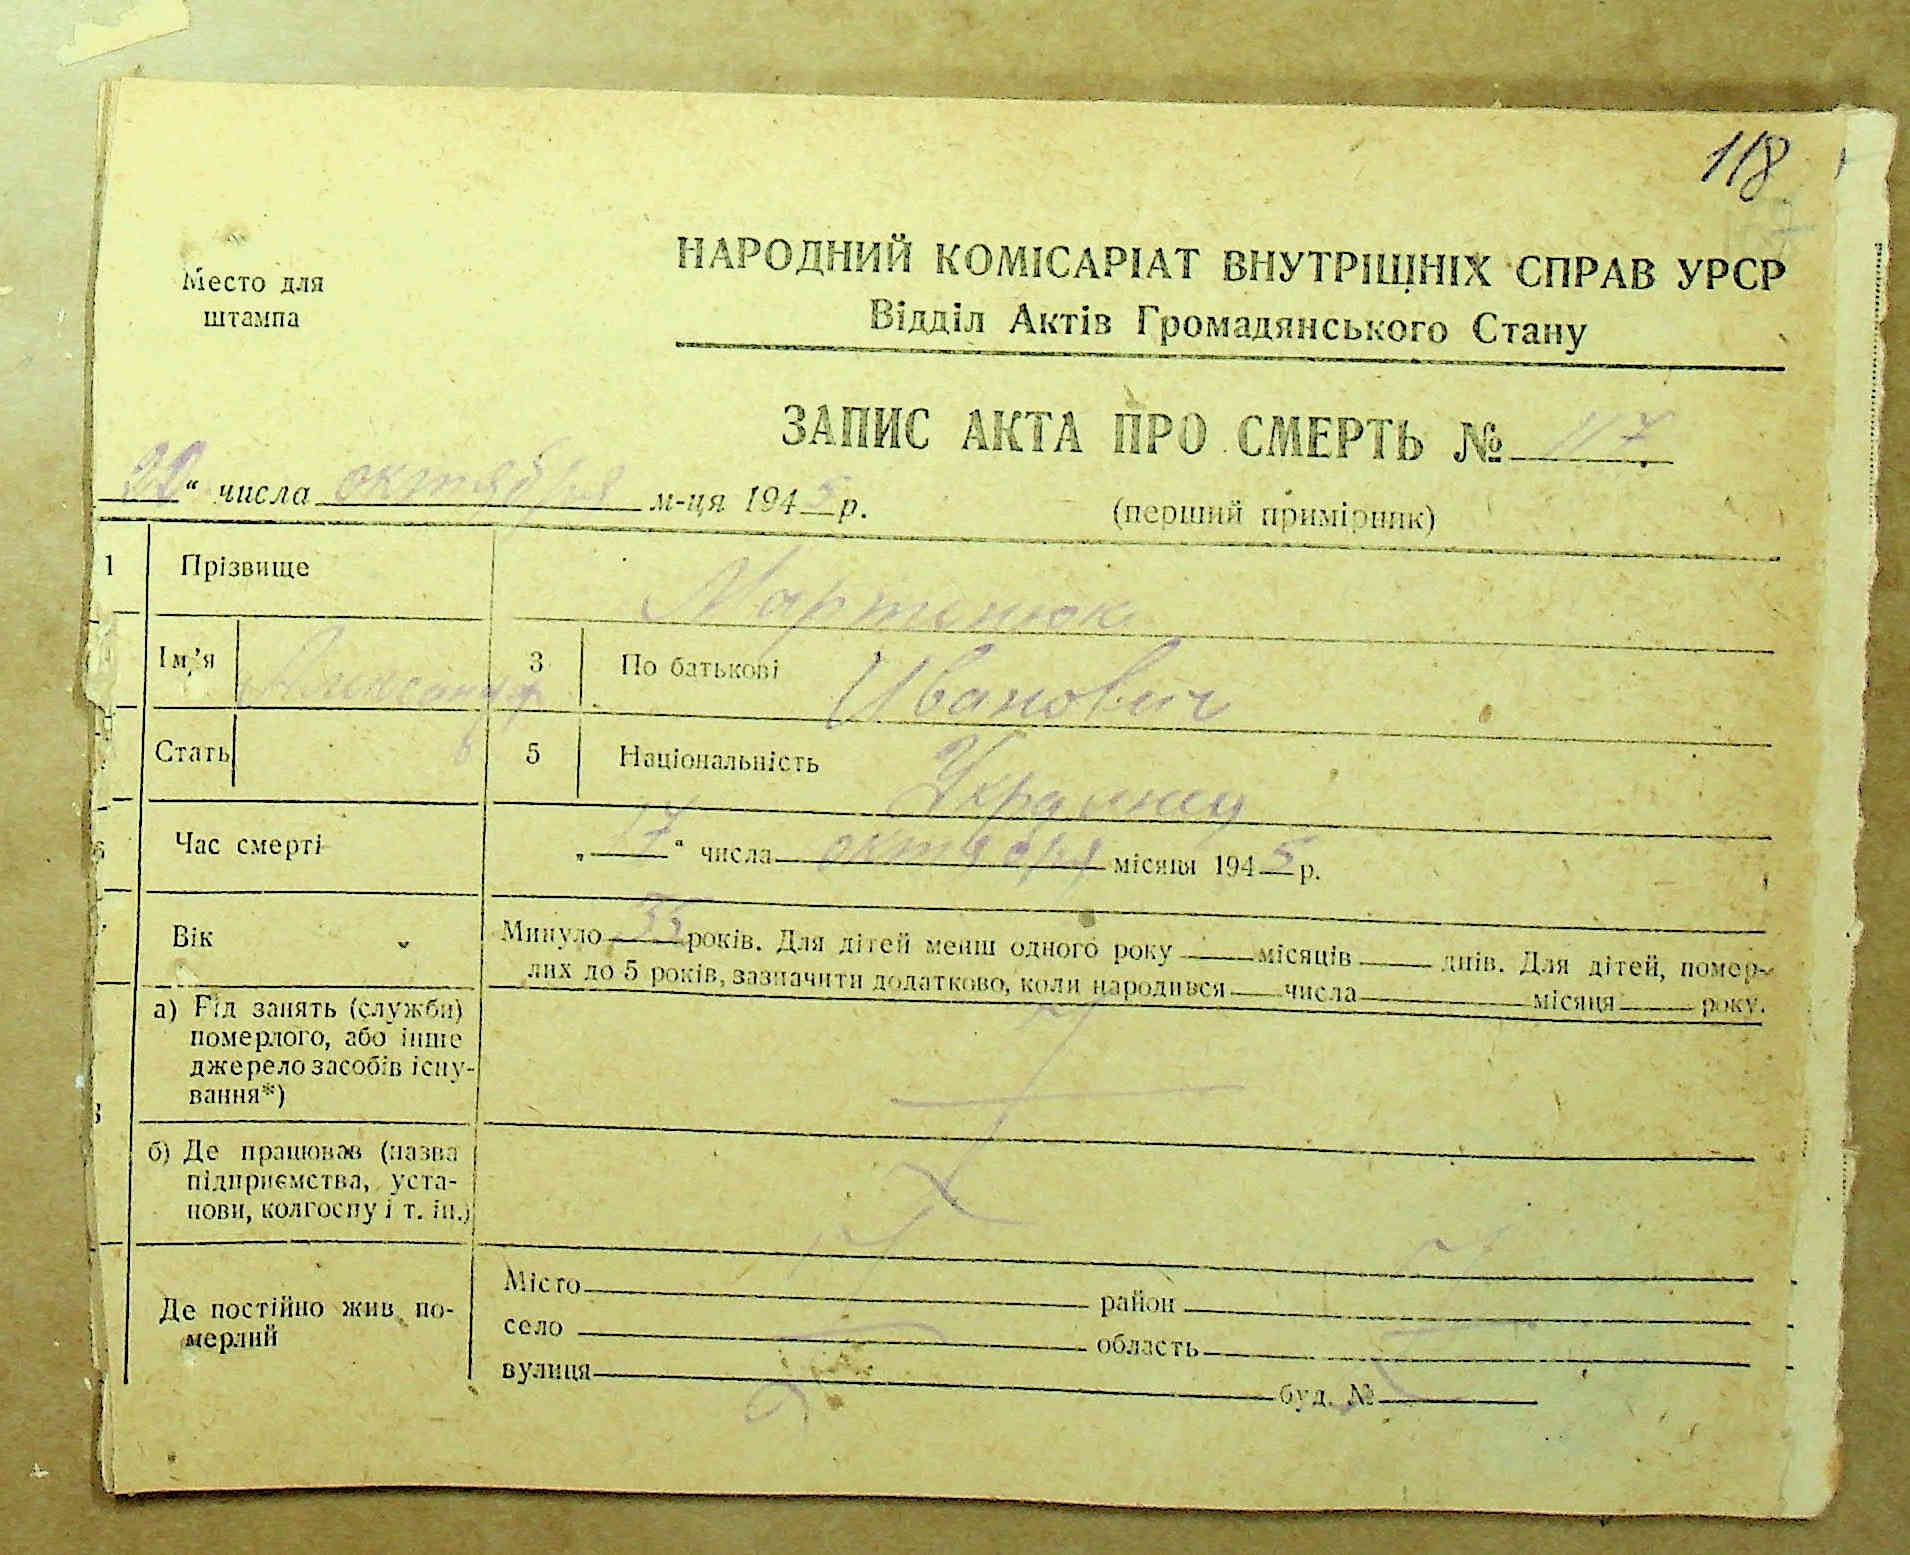 118
Место для
штампа
НАРОДНИЙ КОМІСАРІАТ ВНУТРІШНІХ СПРАВ УРСР
Відділ Актів Громадянського Стану
ЗАПИС АКТА ПРО СМЕРТЬ № 117
22 “ числа октября м-ця 1945 р.
(перший примірник)
1 Прізвище Мартенюк
Ім’я Александр 3 По батькові Иванович
Стать 5 Національність Украинец
6 Час смерті „ 17 “ числа октября місяця 1945 р.
Вік Минуло 35 років. Для дітей менш одного року місяців днів. Для дітей, помер-
лих до 5 років, зазначити додатково, коли народився числа місяця року.
а) Рід занять (служби)
померлого, або інше
джерело засобів існу-
вання*)
б) Де працював (назва
підприємства, уста-
нови, колгоспу і т. ін.)
Де постійно жив по-
мерлий
Місто район
село область
вулиця буд. №